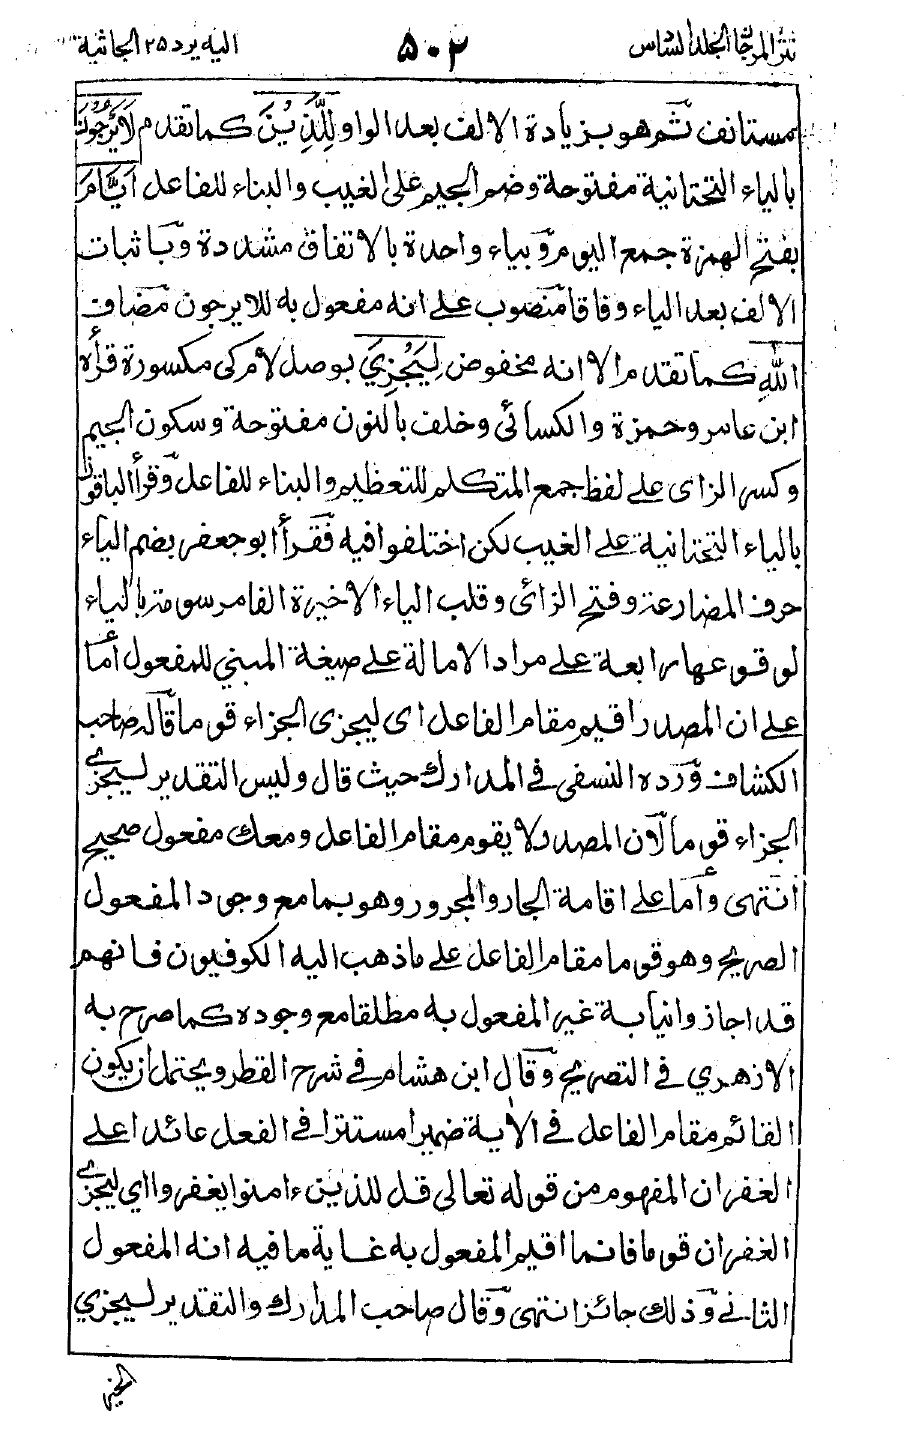 نثر المرجان الجلد السادس ۵۰۲ اليه يرد ۲۵ الجاثية
مستانف ثم هو بزيادة الالف بعد الواو لِلَّذِيْنَ كما تقدم لَايَرْجُوْنَ
بالياء التحتانية مفتوحة وضم الجيم على الغيب والبناء للفاعل اَيَّامَ
بفتح الهمزة جمع اليوم وبياء واحدة بالاتفاق مشددة وباثبات
الالف بعد الياء وفاقا منصوب على انه مفعول به للايرجون مضاف
اللّٰهِ كما تقدم الا انه مخفوض لِيَجْزِيَ بوصل لام كى مكسورة قرأه
ابن عامر وحمزة والكسائى وخلف بالنون مفتوحة وسكون الجيم
وكسر الزاى على لفظ جمع المتكلم للتعظيم والبناء للفاعل وقرأ الباقون
بالياء التحتانية على الغيب لكن اختلفوا فيه فقرأ ابو جعفر بضم الياء
حرف المضارعة وفتح الزائ وقلب الياء الاخيرة الفا مرسومة بالياء
لوقوعها رابعة على مراد الامالة على صيغة المبني للمفعول أما
على ان المصدر اقيم مقام الفاعل اى ليجزى الجزاء قوما قاله صاحب
الكشاف ورده النسفى فى المدارك حيث قال وليس التقدير ليجزى
الجزاء قوما لان المصدر لا يقوم مقام الفاعل ومعك مفعول صحيح
انتهى وأما على اقامة الجار والمجرور وهو بما مع وجود المفعول
الصريح وهو قوما مقام الفاعل على ماذهب اليه الكوفيون فانهم
قد اجازوا نيابة غير المفعول به مطلقا مع وجوده كما صرح به
الازهري فى التصريح وقال ابن هشام فى شرح القطر ويحتمل ان يكون
القائم مقام الفاعل فى الأية ضميرا مستترا فى الفعل عائدا على
الغفران المفهوم من قوله تعالى قل للذين ءامنوا يغفروا اي ليجزى
الغفران قوما فانما اقيم المفعول به غاية ما فيه انه المفعول
الثانے وذلك جائز انتهى وقال صاحب المدارك والتقدير ليجزي